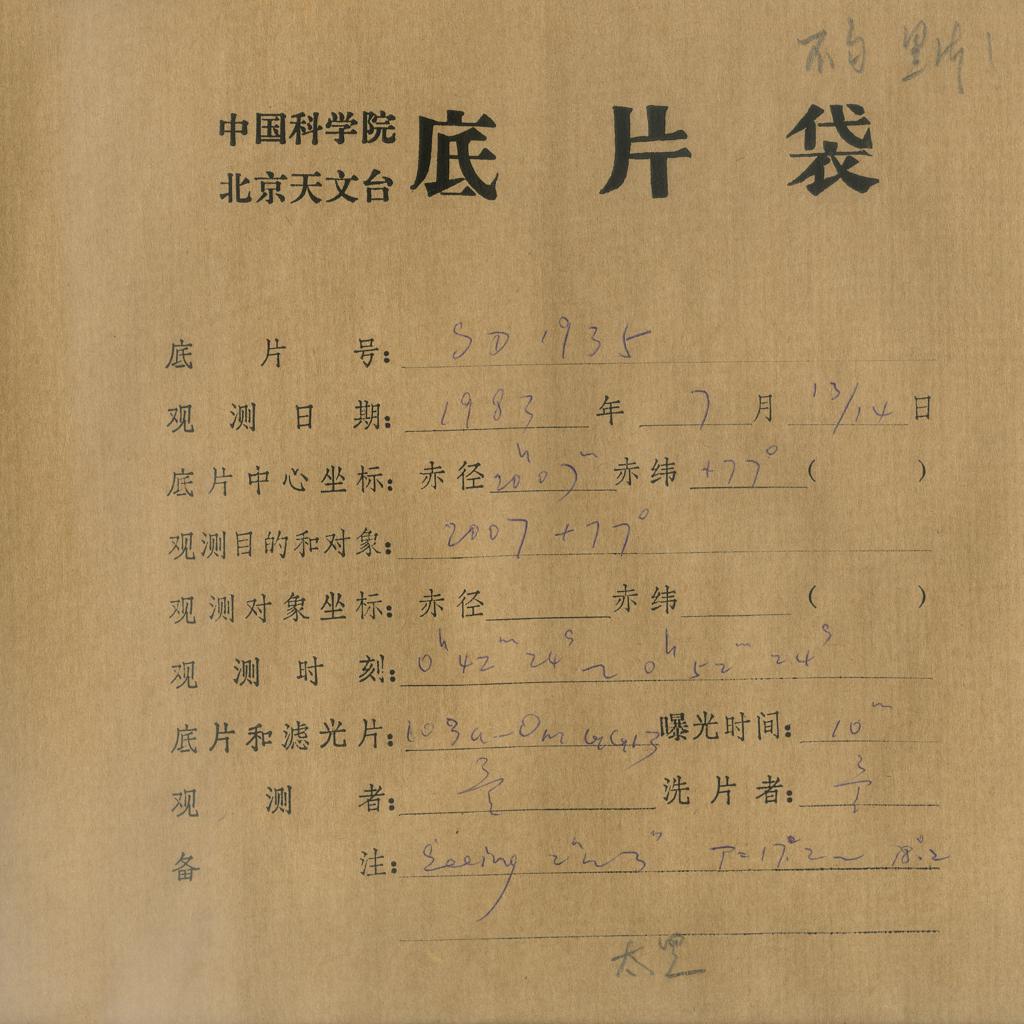 中国科学院
北京天文台 底片袋
底片号: SD 1935
观测日期: 1983 年 7 月 13/14 日
底片中心坐标: 赤径 20h07m 赤纬 +77° ( )
观测目的和对象: 2007 +77°
观测对象坐标: 赤径 赤纬 ( )
观测时刻: 0h 42m 24s ~ 0h 52m 24s
底片和滤光片: 103a-O 曝光时间: 10m
观测者: 洗片者:
备注: Seeing 2"~3" T=17°.2 ~ 18°.2
太黑